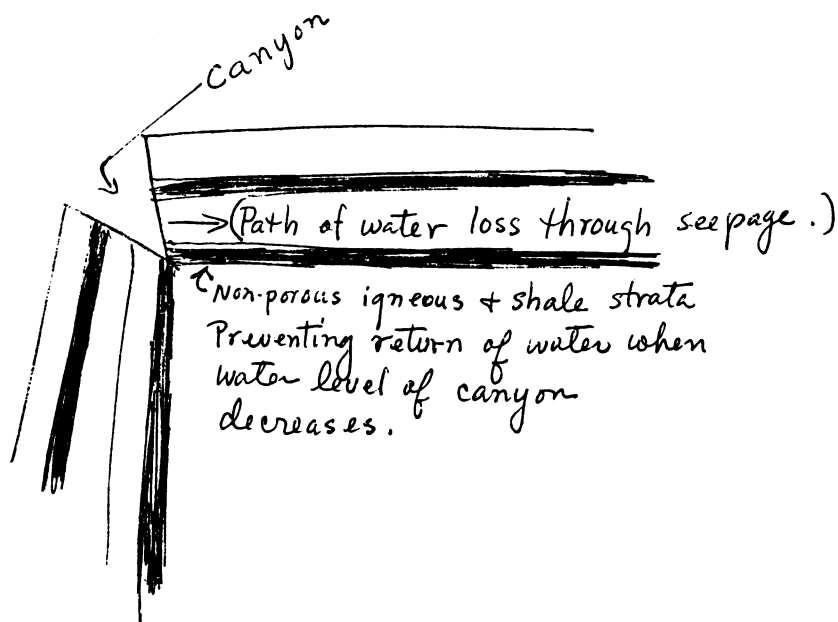 Canyon
(Path of water loss through seepage.)
Non-porous igneous & shale strata
Preventing return of water when
water level of canyon
decreases.